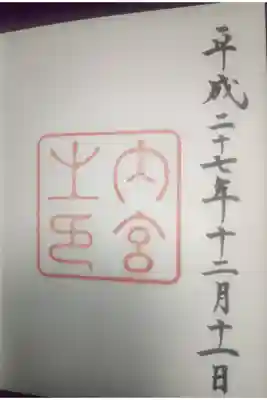 平成二十七年十二月十一日
内宮
之印